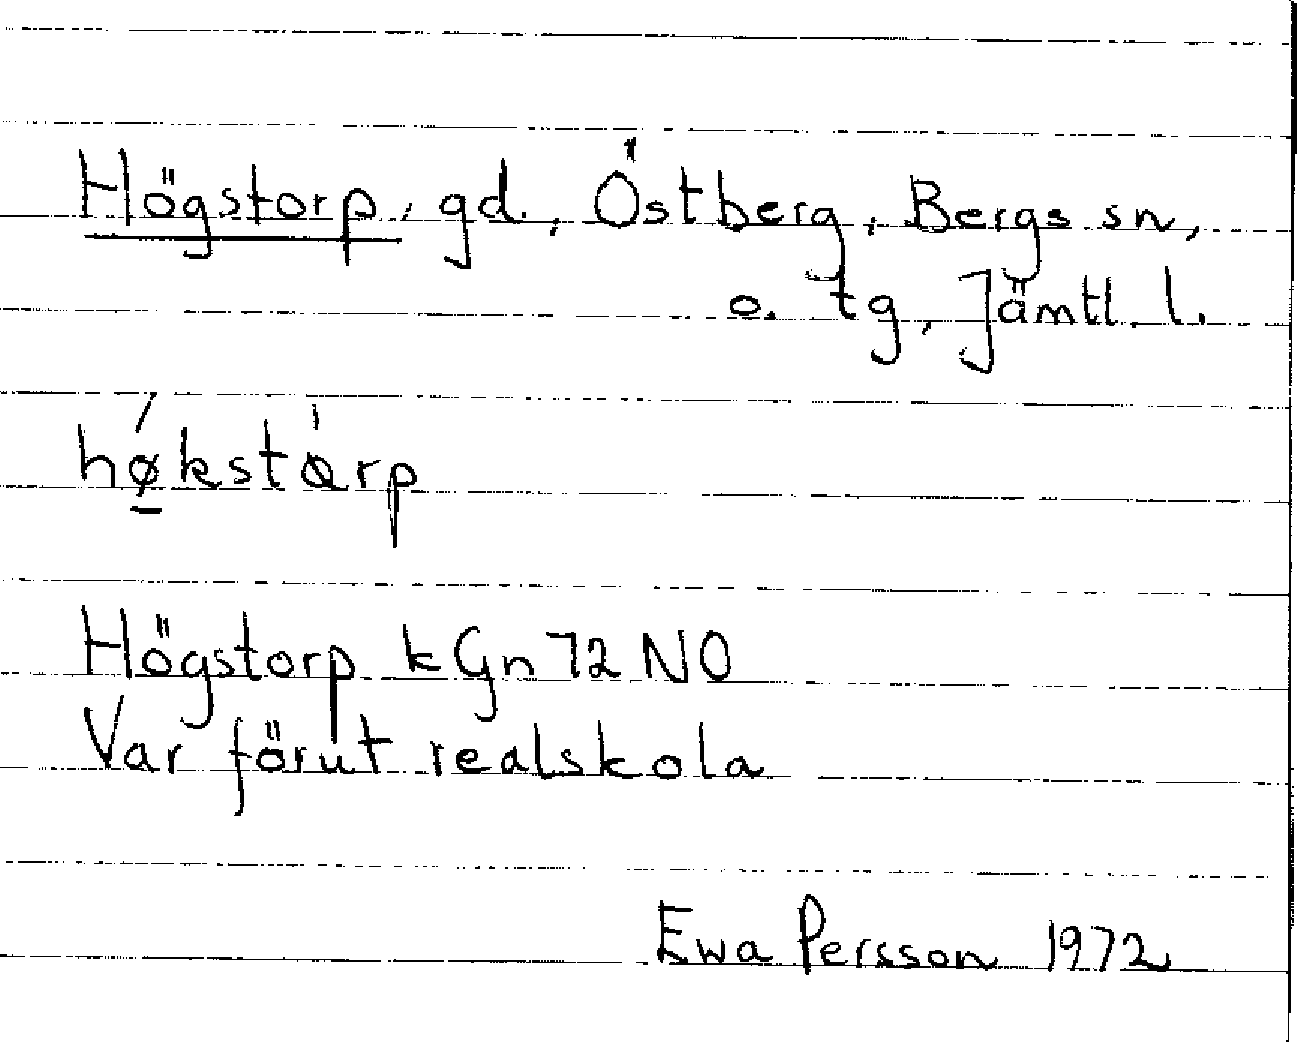 Högstorp, gd., Östberg, Bergs sn,
o. tg, Jämtl. l.
hǿ̲kstà̀rp
Högstorp kGn 72 NO
Var förut realskola
Ewa Persson 1972